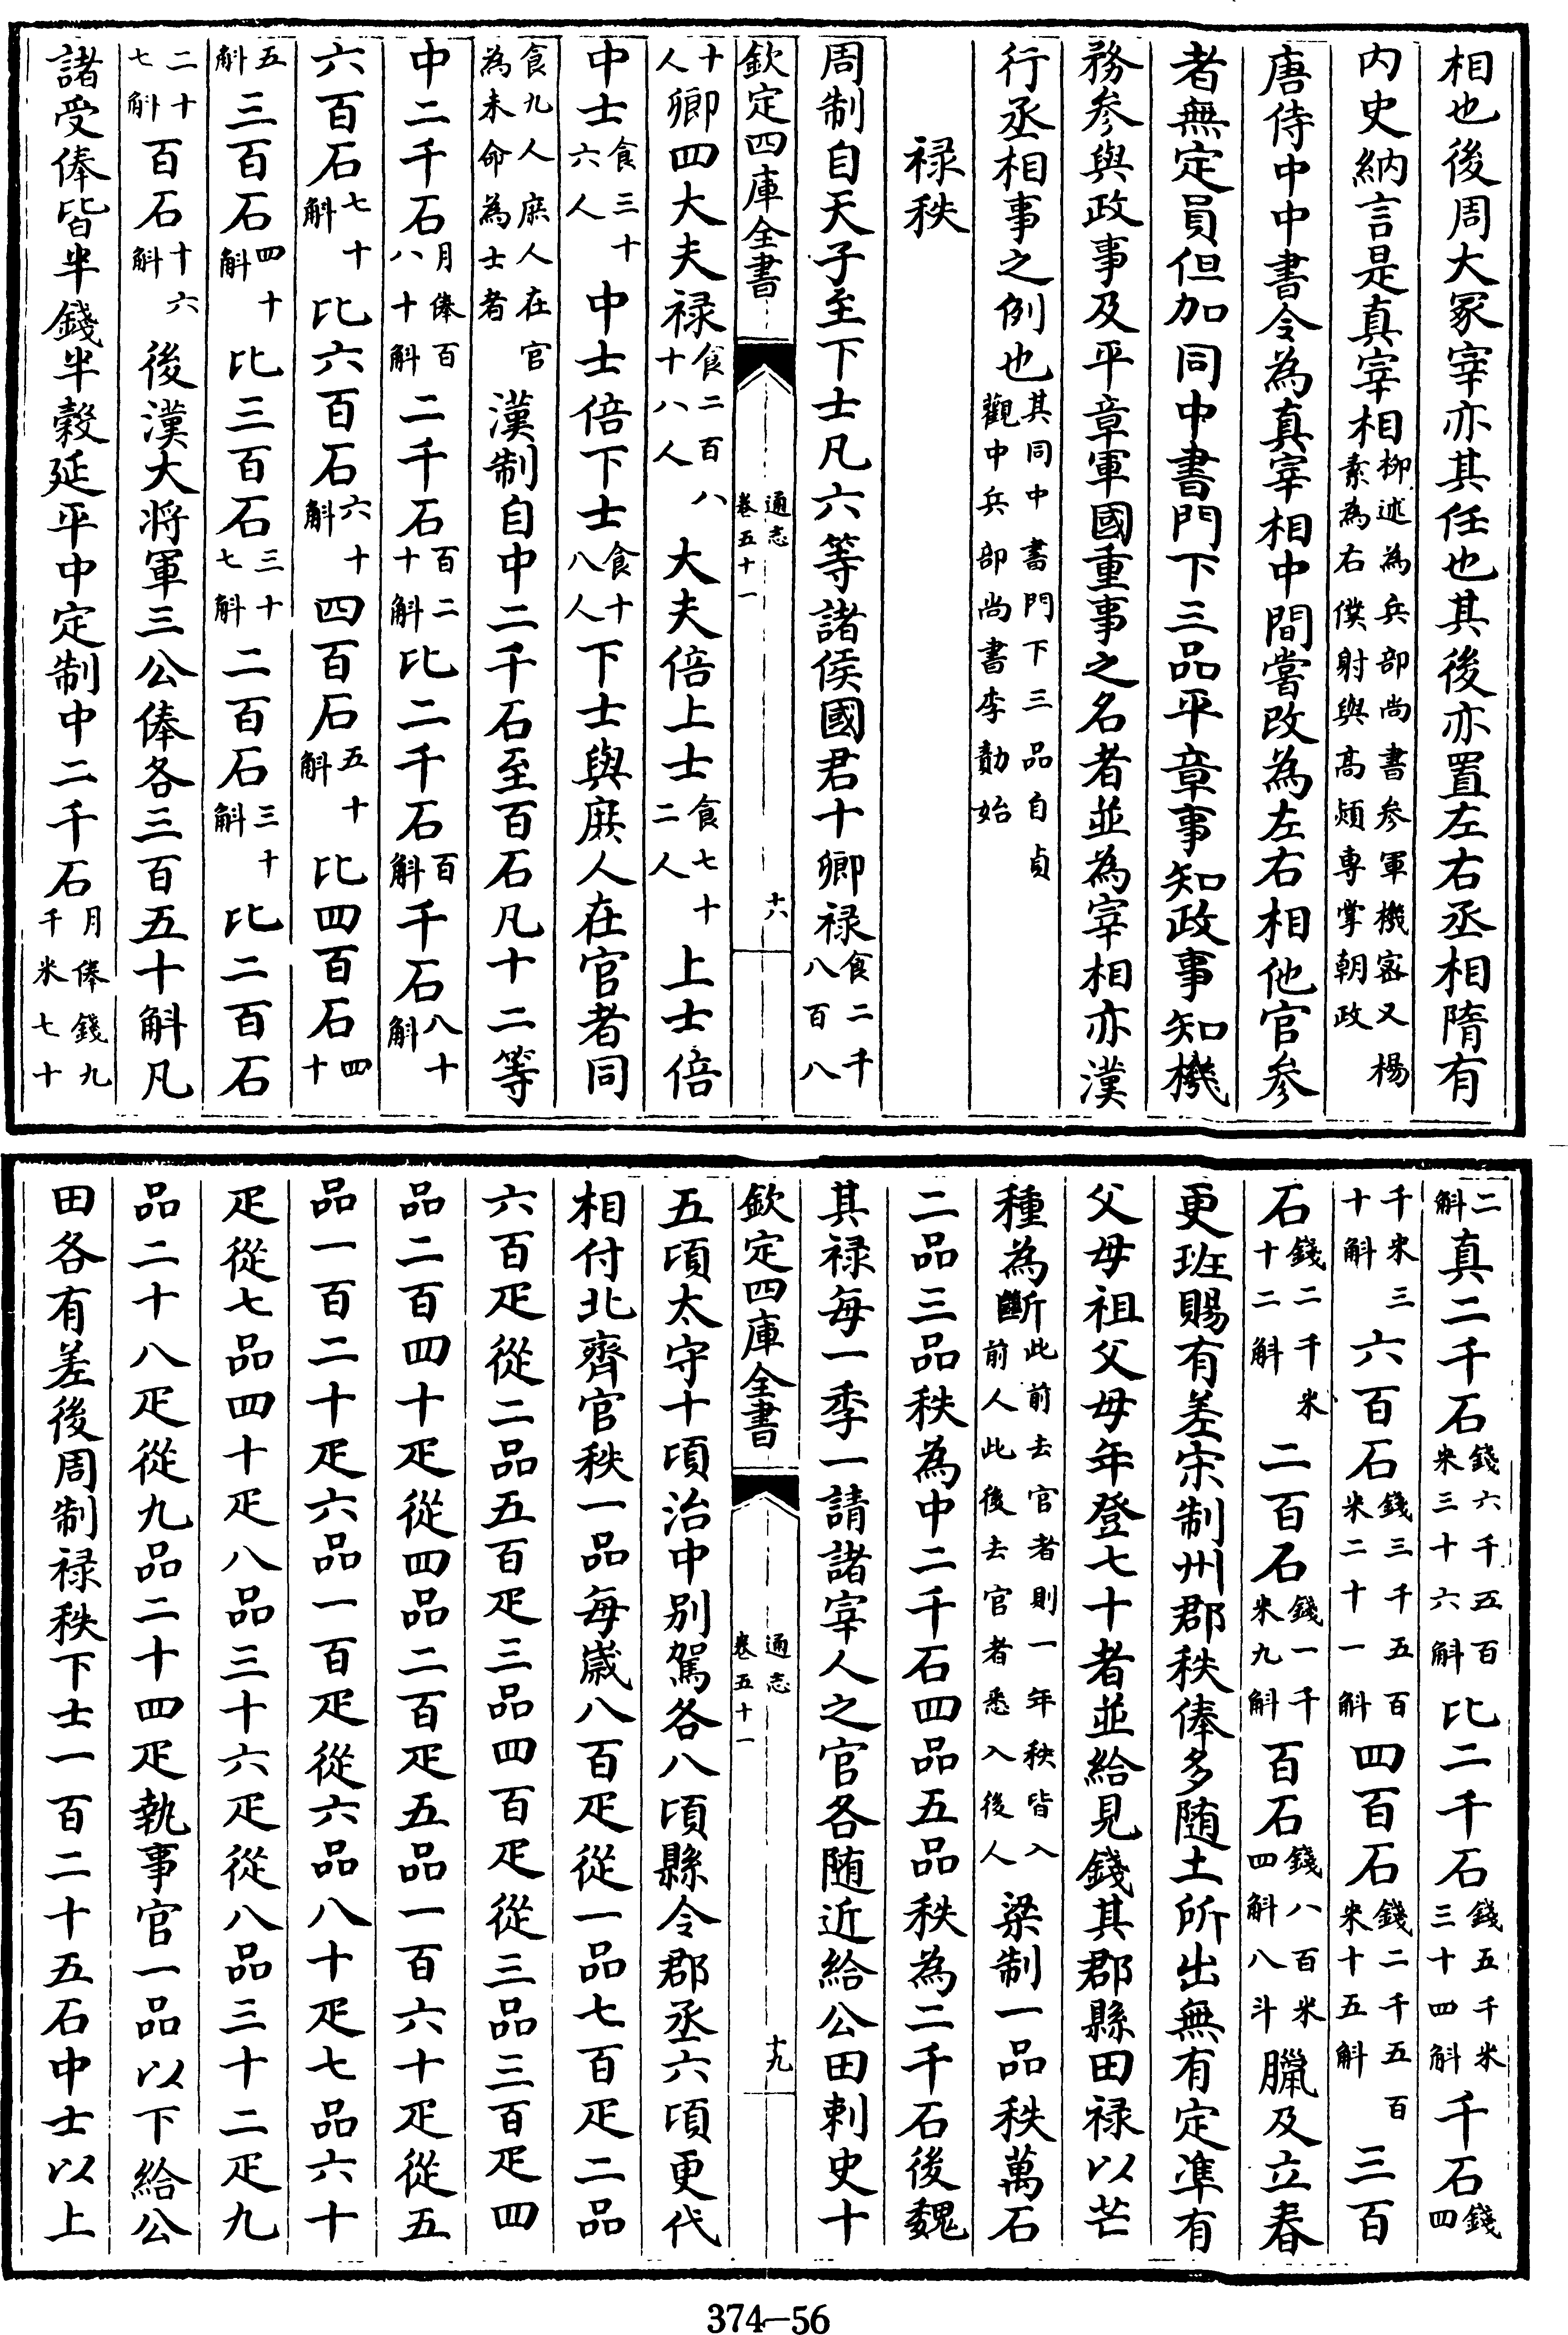 相也後周大冢宰亦其任也其後亦置左右丞相隋有
内史納言是真宰相柳述為兵部尚書參軍機宻又楊素為右僕射與高熲專掌朝政
唐侍中中書令為真宰相中間嘗改為左右相他官參
者無定員但加同中書門下三品平章事知政事知機
務參與政事及平章軍國重事之名者並為宰相亦漢
行丞相事之例也其同中書門下三品自貞觀中兵部尚書李勣始
禄秩
周制自天子至下士凡六等諸侯國君十卿禄食二千八百八
欽定四庫全書
通志
卷五十一
十八
十人卿四大夫禄食二百八十八人大夫倍上士食七十二人上士倍
中士食三十六人中士倍下士食十八人下士與庶人在官者同
食九人庶人在官為未命為士者漢制自中二千石至百石凡十二等
中二千石月俸百八十斛二千石百二十斛比二千石百斛千石八十斛
六百石七十斛比六百石六十斛四百石五十斛比四百石四十
五斛三百石四十斛比三百石三十七斛二百石三十斛比二百石
二十七斛百石十六斛後漢大将軍三公俸各三百五十斛凡
諸受俸皆半錢半穀延平中定制中二千石月俸錢九千米七十
二斛真二千石錢六千五百米三十六斛比二千石錢五千米三十四斛千石錢四
千米三十斛六百石錢三千五百米二十一斛四百石錢二千五百米十五斛三百
石錢二千米十二斛二百石錢一千米九斛百石錢八百米四斛八斗臘及立春
更班賜有差宋制州郡秩俸多随土所出無有定凖有
父母祖父母年登七十者並給見錢其郡縣田禄以芒
種為斷此前去官者則一年秩皆入前人此後去官者悉入後人梁制一品秩萬石
二品三品秩為中二千石四品五品秩為二千石後魏
其禄每一季一請諸宰人之官各随近給公田刺史十
欽定四庫全書
通志
卷五十一
十九
五頃太守十頃治中别駕各八頃縣令郡丞六頃更代
相付北齊官秩一品每嵗八百疋從一品七百疋二品
六百疋從二品五百疋三品四百疋從三品三百疋四
品二百四十疋從四品二百疋五品一百六十疋從五
品一百二十疋六品一百疋從六品八十疋七品六十
疋從七品四十疋八品三十六疋從八品三十二疋九
品二十八疋從九品二十四疋執事官一品以下給公
田各有差後周制禄秩下士一百二十五石中士以上
374-56